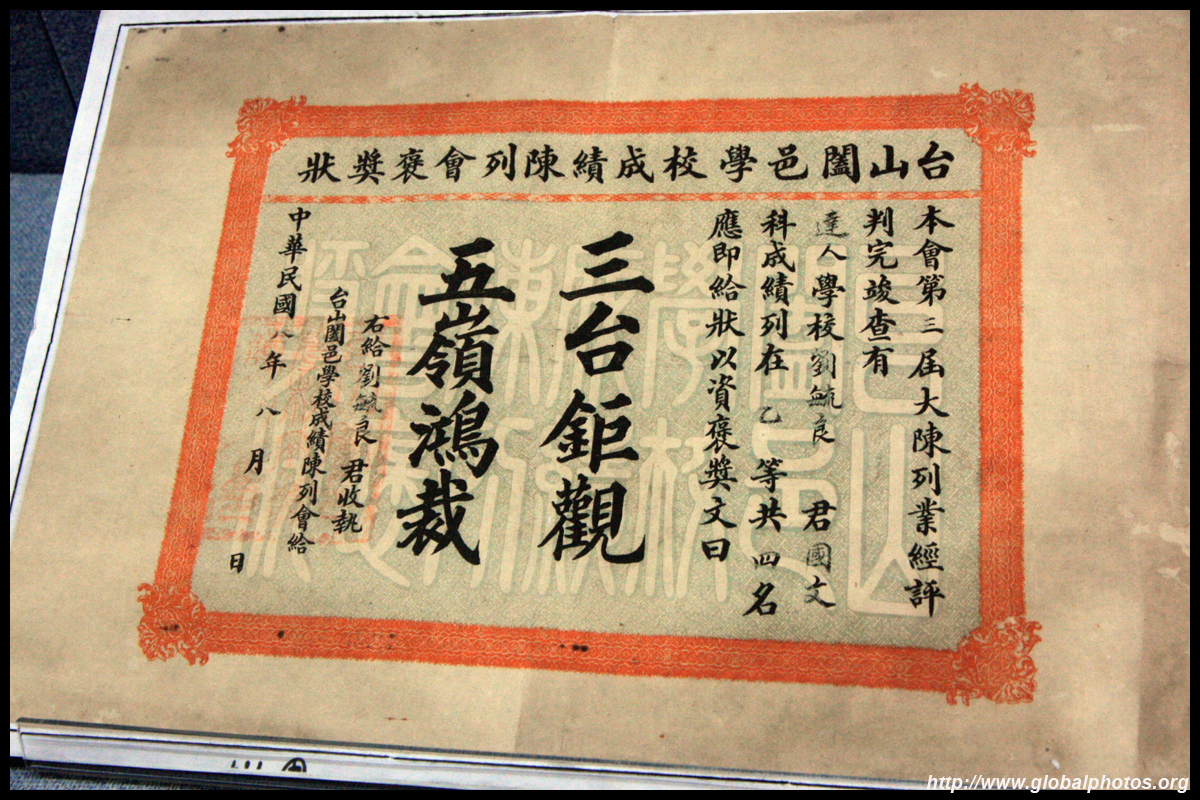 台山闔邑學校成績陳列會褒獎狀
本會第三屆大陳列業經評
判完竣查有
達人學校劉毓良 君國文
科成績列在乙等共四名
應即給狀以資褒獎文曰
三台鉅觀
五嶺鴻裁
右給劉毓良 君收執
台山闔邑學校成績陳列會給
中華民國八年八月 日
http://www.globalphotos.org